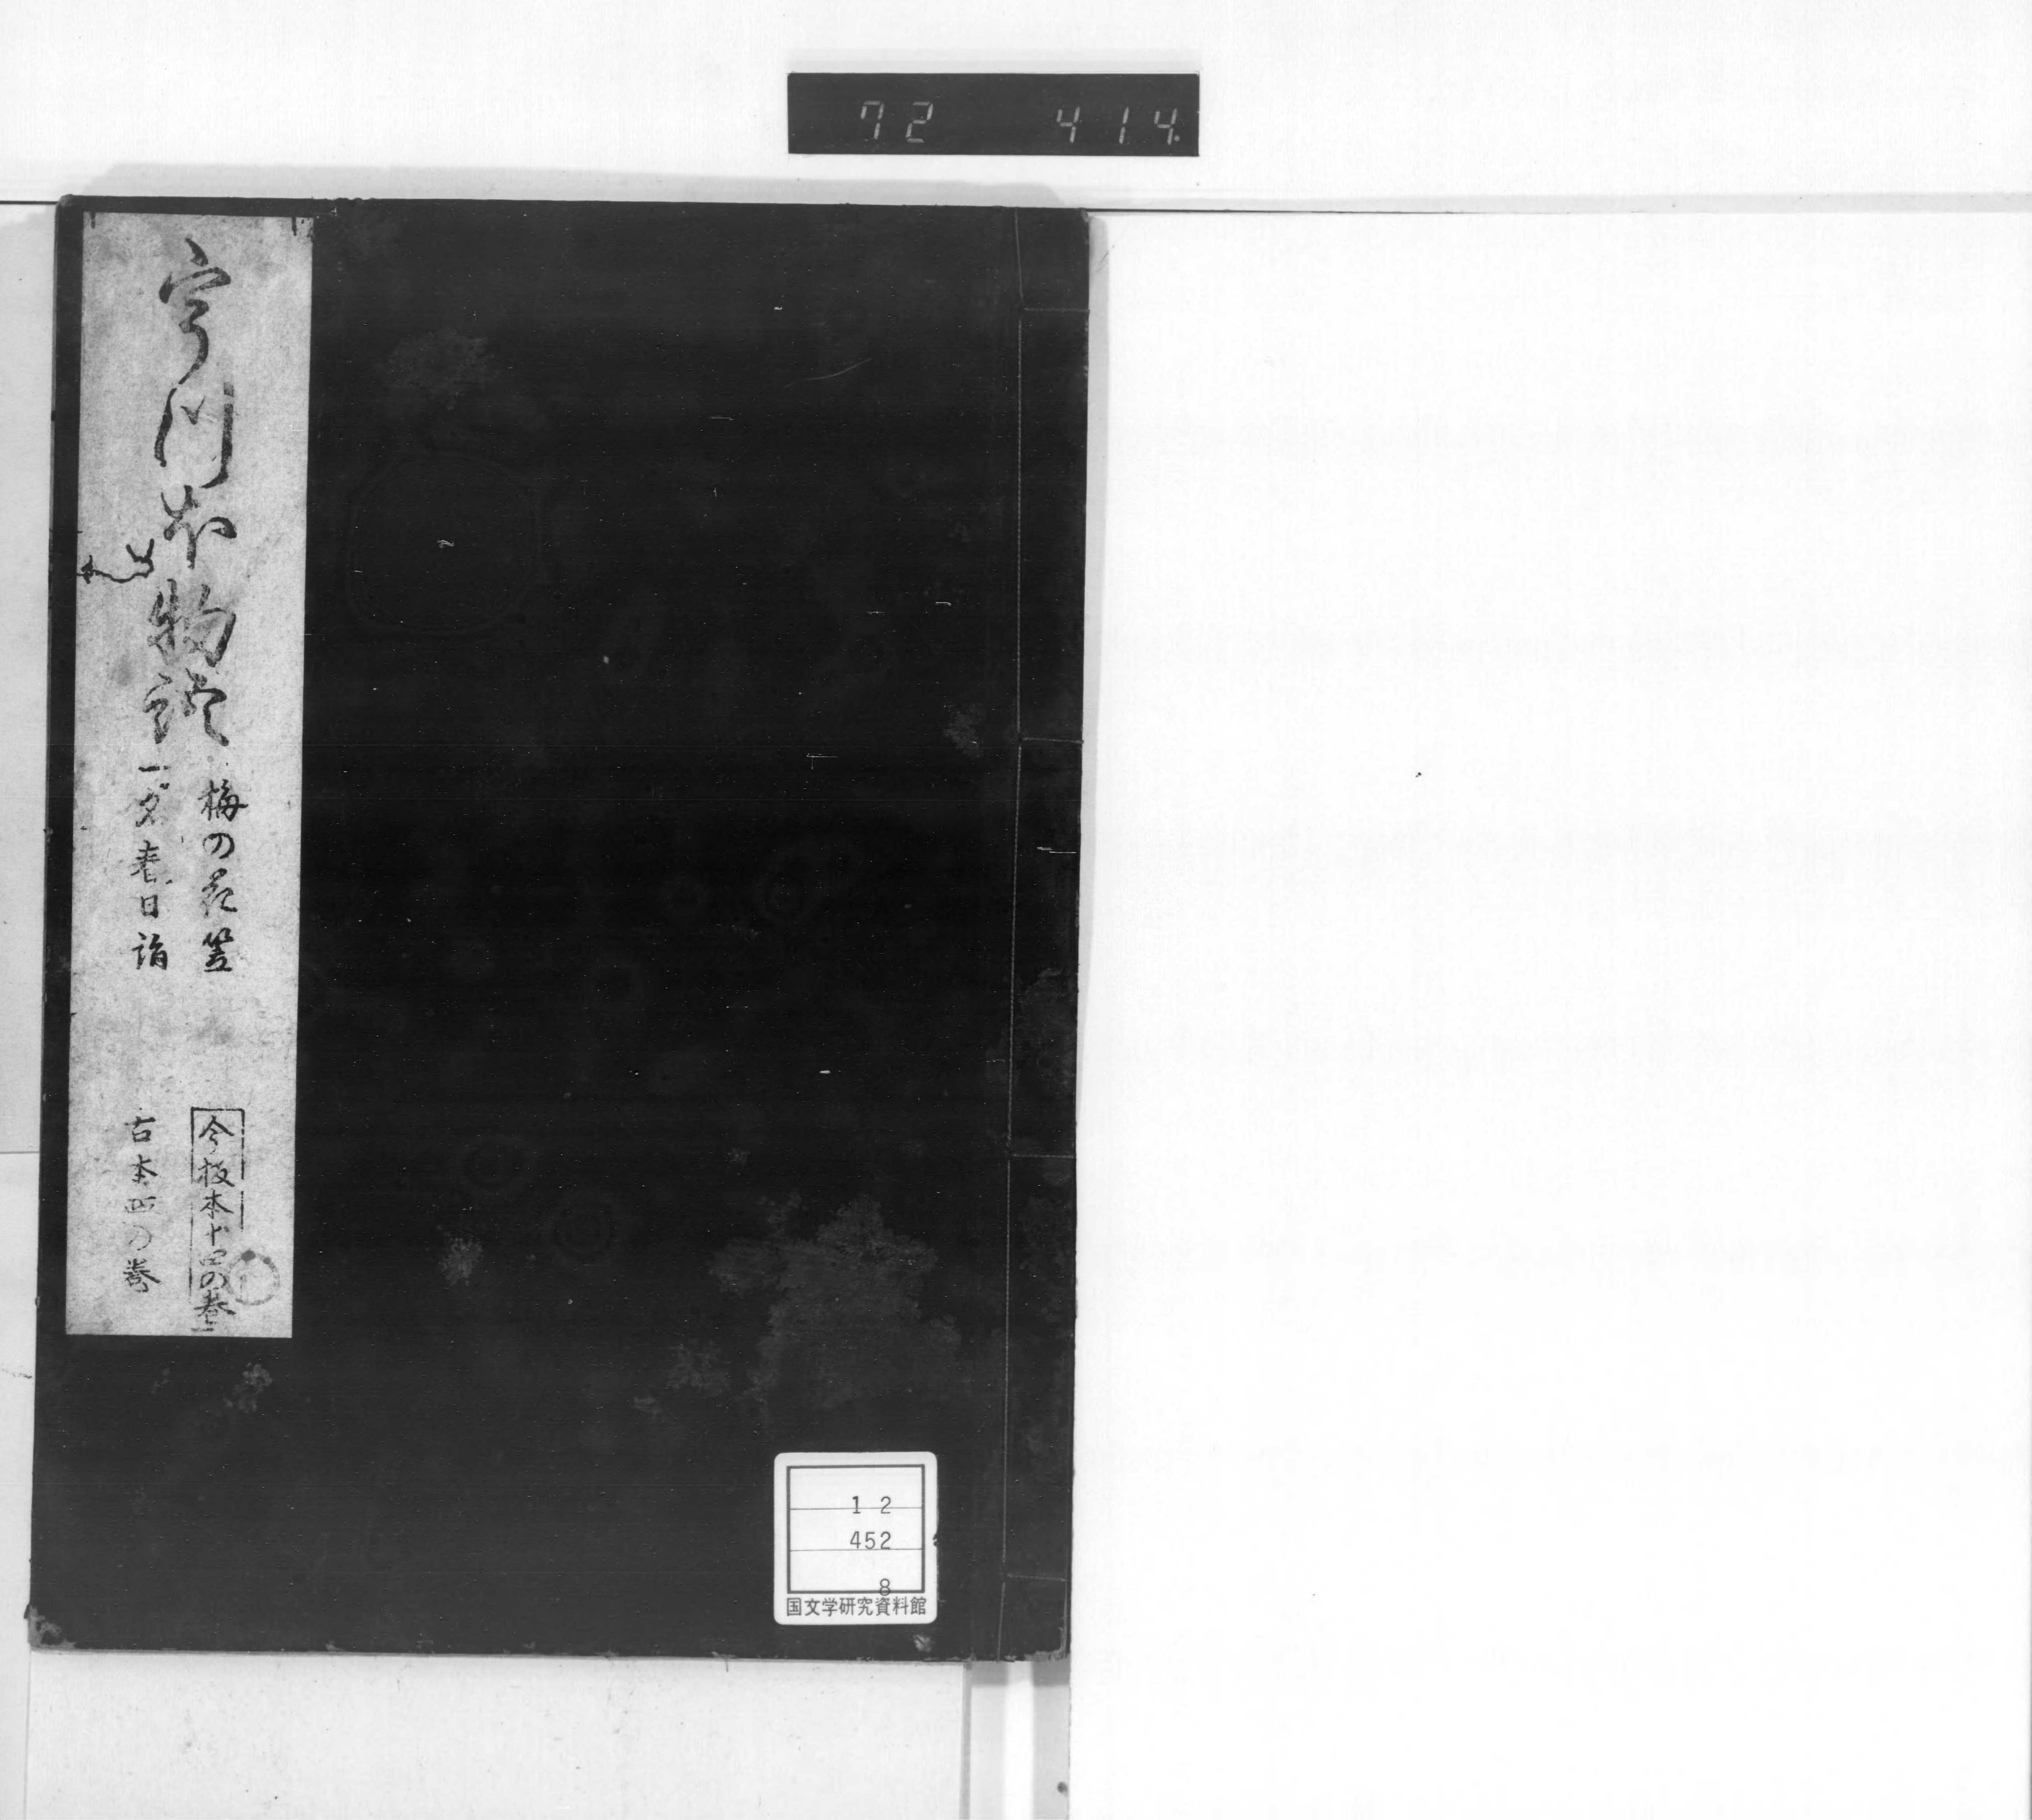 72 414
宇川本物語
梅の花笠
一名春日詣
今板本十四の巻
古本四の巻
12
452
8
国文学研究資料館